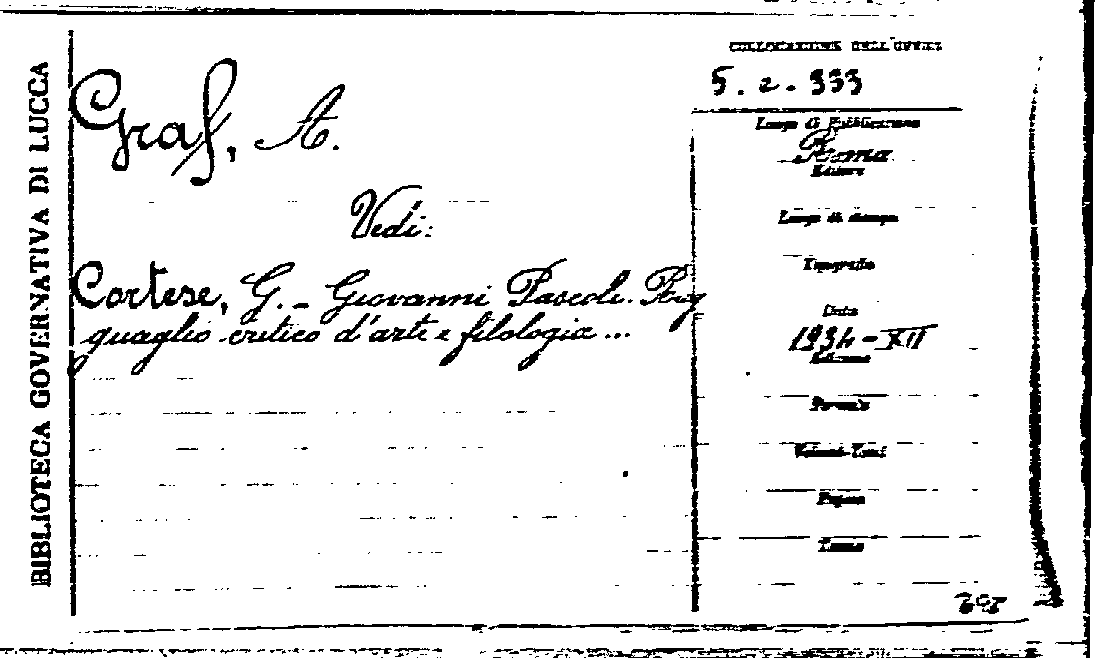 BIBLIOTECA GOVERNATIVA DI LUCCA
Graf, A.
Vedi:
Cortese, G. - Giovanni Pascoli. Rag
guaglio critico d'arte e filologia ...
COLLOCAZIONE DELL'OPERA
5. 2. 333
Luogo di Pubblicazione
Roma
Editore
Luogo di stampa
Tipografia
Data
1934-XII
Edizione
Formato
Volumi-Tomi
Pagine